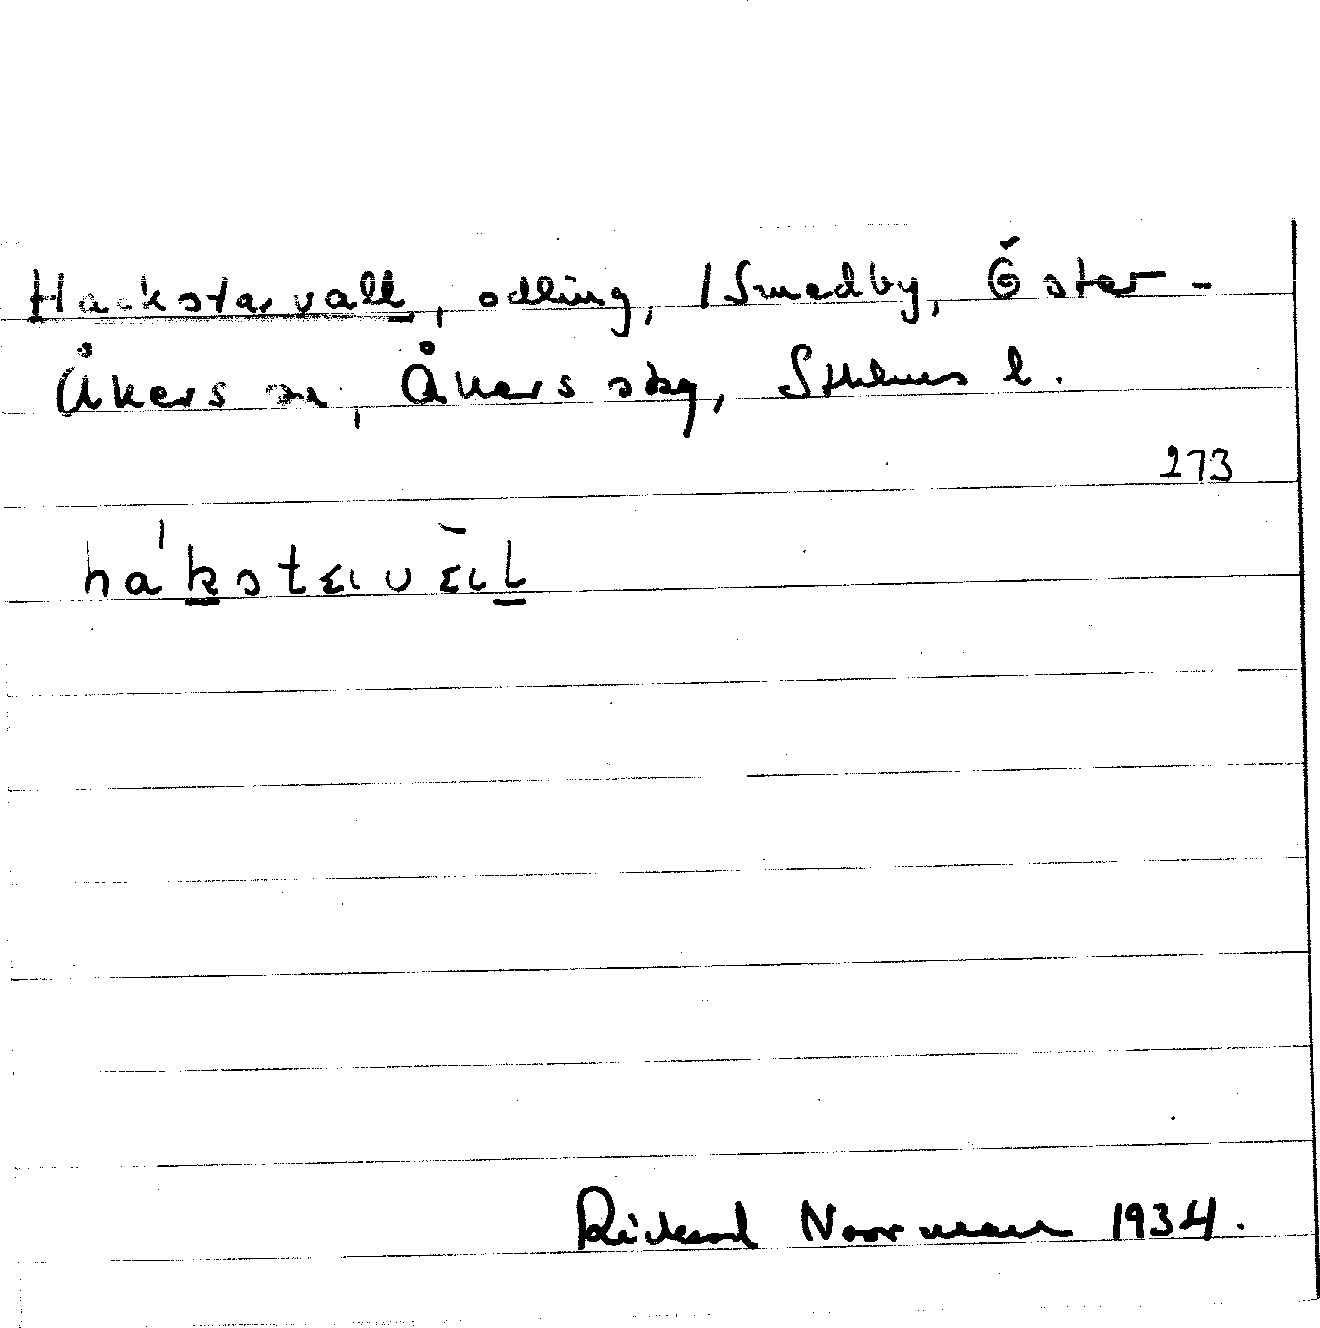 Hackstarvall, odling, /Smedby, Öster-
Åkers sn, Åkers skg, Sthlms l.
273
Rickard Norrman 1934.